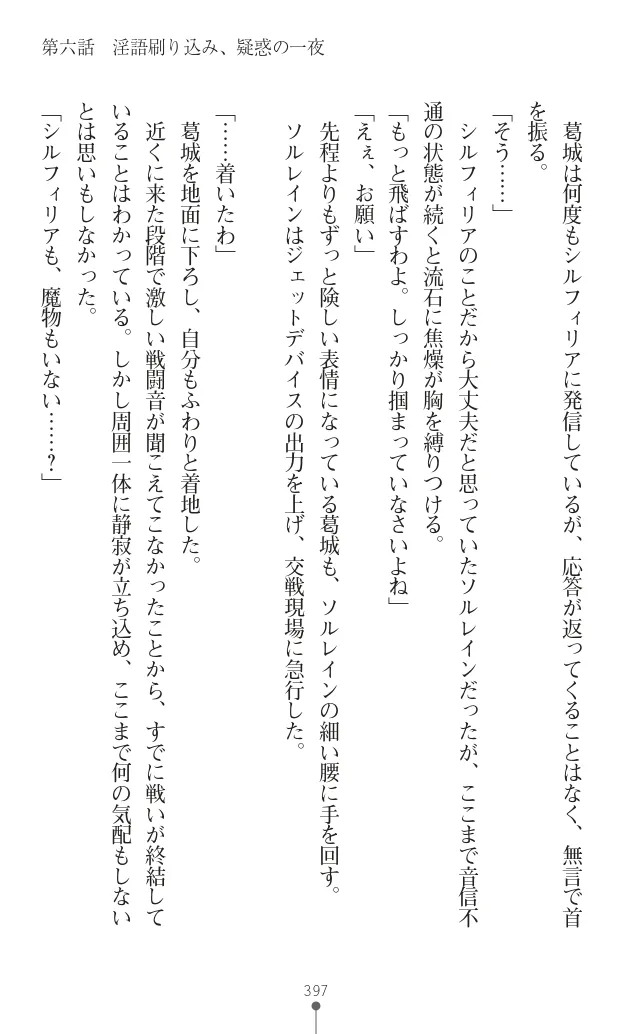 第六話　淫語刷り込み、疑惑の一夜
　葛城は何度もシルフィリアに発信しているが、応答が返ってくることはなく、無言で首
を振る。
「そう……」
　シルフィリアのことだから大丈夫だと思っていたソルレインだったが、ここまで音信不
通の状態が続くと流石に焦燥が胸を縛りつける。
「もっと飛ばすわよ。しっかり掴まっていなさいよね」
「えぇ、お願い」
　先程よりもずっと険しい表情になっている葛城も、ソルレインの細い腰に手を回す。
　ソルレインはジェットデバイスの出力を上げ、交戦現場に急行した。
「……着いたわ」
　葛城を地面に下ろし、自分もふわりと着地した。
　近くに来た段階で激しい戦闘音が聞こえてこなかったことから、すでに戦いが終結して
いることはわかっている。しかし周囲一体に静寂が立ち込め、ここまで何の気配もしない
とは思いもしなかった。
「シルフィリアも、魔物もいない……？」
397